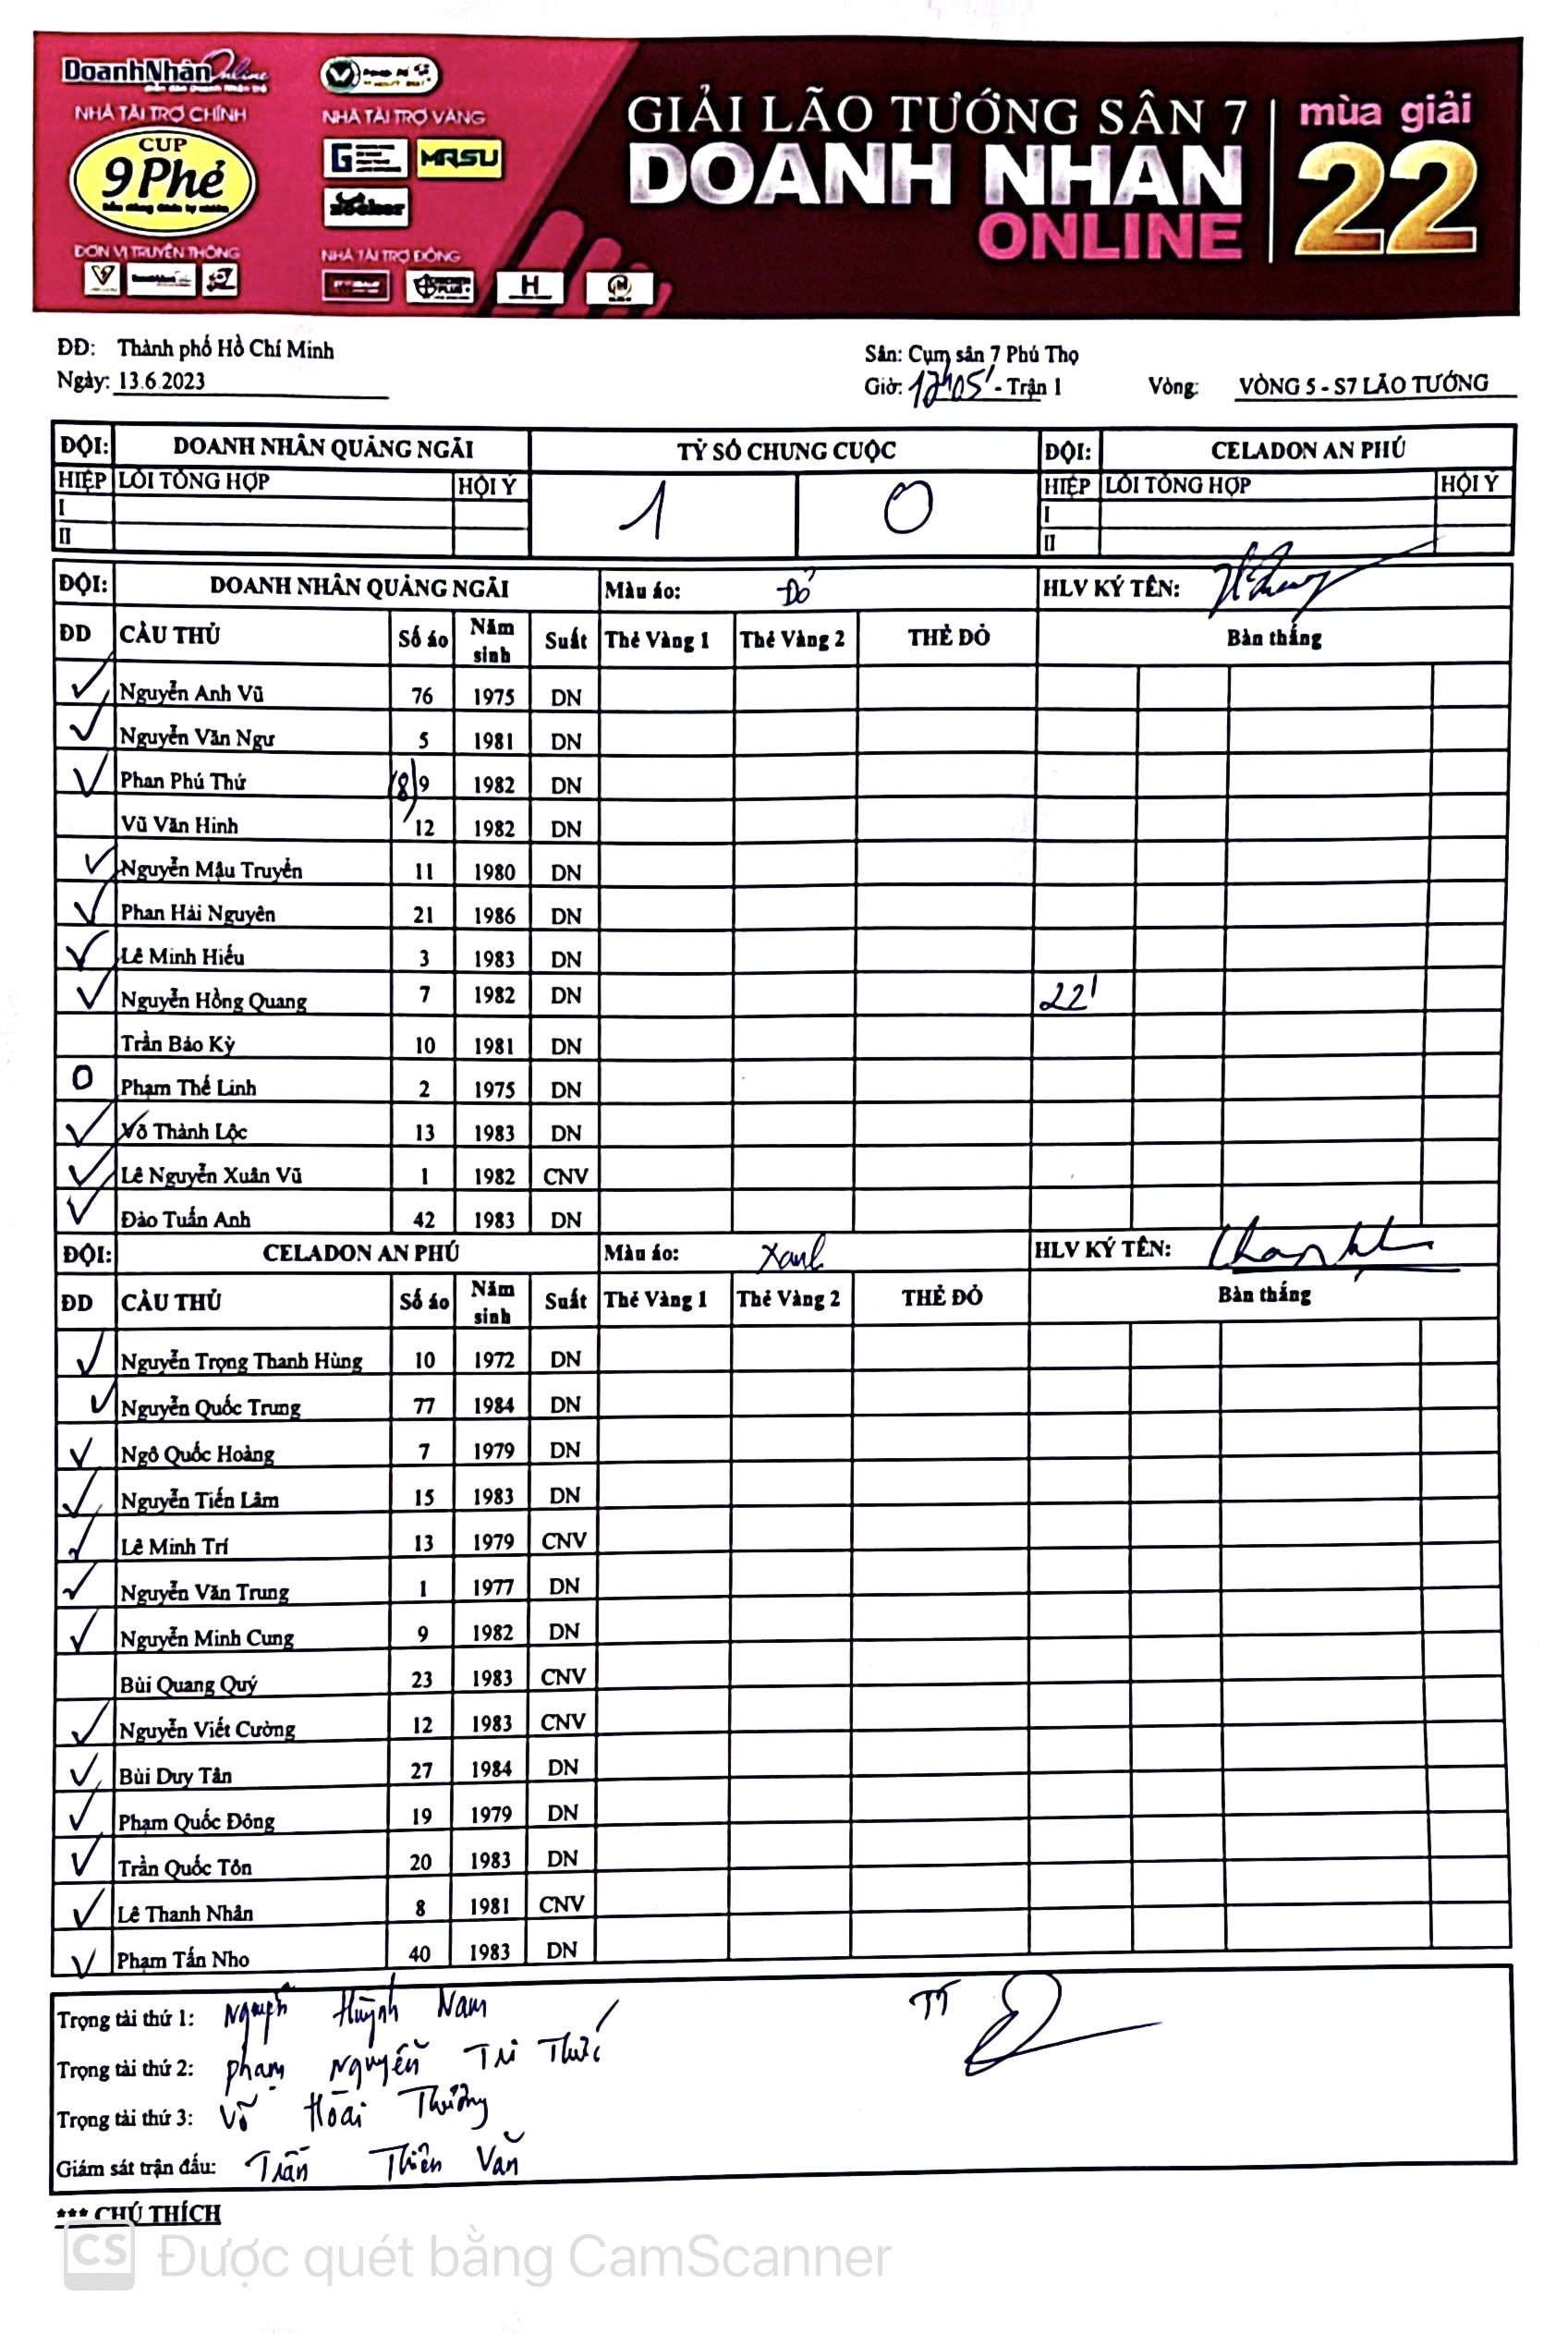 DoanhNhân Online
NHÀ TÀI TRỢ CHÍNH
CUP
9 Phẻ
NHÀ TÀI TRỢ VÀNG
MRSU
ĐƠN VỊ TRUYỀN THÔNG
NHÀ TÀI TRỢ ĐỒNG
H
GIẢI LÃO TƯỚNG SÂN 7
DOANH NHAN
ONLINE
mùa giải
22
ĐĐ: Thành phố Hồ Chí Minh
Sân: Cụm sân 7 Phú Thọ
Ngày: 13.6.2023
Giờ: 17h05' - Trận 1 Vòng: VÒNG 5 - S7 LÃO TƯỚNG
ĐỘI: DOANH NHÂN QUẢNG NGÃI TỶ SỐ CHUNG CUỘC ĐỘI: CELADON AN PHÚ
HIỆP LỖI TỔNG HỢP HỘI Ý 1 0 HIỆP LỖI TỔNG HỢP HỘI Ý
I I
II II
ĐỘI: DOANH NHÂN QUẢNG NGÃI Màu áo: Đỏ HLV KÝ TÊN:
ĐD CẦU THỦ Số áo Năm sinh Suất Thẻ Vàng 1 Thẻ Vàng 2 THẺ ĐỎ Bàn thắng
Nguyễn Anh Vũ 76 1975 DN
Nguyễn Văn Ngư 5 1981 DN
Phan Phú Thứ (8) 9 1982 DN
Vũ Văn Hinh 12 1982 DN
Nguyễn Mậu Truyền 11 1980 DN
Phan Hải Nguyên 21 1986 DN
Lê Minh Hiếu 3 1983 DN
Nguyễn Hồng Quang 7 1982 DN 22'
Trần Bảo Kỳ 10 1981 DN
O Phạm Thế Linh 2 1975 DN
Võ Thành Lộc 13 1983 DN
Lê Nguyễn Xuân Vũ 1 1982 CNV
Đào Tuấn Anh 42 1983 DN
ĐỘI: CELADON AN PHÚ Màu áo: Xanh HLV KÝ TÊN:
ĐD CẦU THỦ Số áo Năm sinh Suất Thẻ Vàng 1 Thẻ Vàng 2 THẺ ĐỎ Bàn thắng
Nguyễn Trọng Thanh Hùng 10 1972 DN
Nguyễn Quốc Trung 77 1984 DN
Ngô Quốc Hoàng 7 1979 DN
Nguyễn Tiến Lâm 15 1983 DN
Lê Minh Trí 13 1979 CNV
Nguyễn Văn Trung 1 1977 DN
Nguyễn Minh Cung 9 1982 DN
Bùi Quang Quý 23 1983 CNV
Nguyễn Viết Cường 12 1983 CNV
Bùi Duy Tân 27 1984 DN
Phạm Quốc Đông 19 1979 DN
Trần Quốc Tôn 20 1983 DN
Lê Thanh Nhân 8 1981 CNV
Phạm Tấn Nho 40 1983 DN
Trọng tài thứ 1: Nguyễn Huỳnh Nam TT
Trọng tài thứ 2: phạm Nguyễn Tri Thức
Trọng tài thứ 3: Võ Hoài Thưởng
Giám sát trận đấu: Trần Thiên Văn
*** CHÚ THÍCH
CS Được quét bằng CamScanner